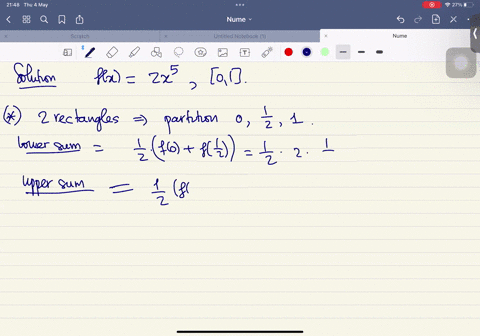 21:48 Thu 4 May
27%
Nume
Untitled Notebook (1)
Nume
Solution f(x) = 2x⁵ , [0,1].
(*) 2 rectangles ⇒ partition 0, 1/2, 1.
lower sum = 1/2 · (f(0) + f(1/2)) = 1/2 · 2 · 1
upper sum = 1/2 (f(